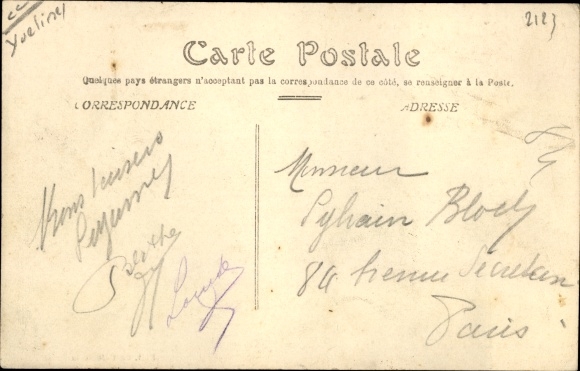 Yvelines
2123
Carte Postale
Quelques pays étrangers n'acceptant pas la correspondance de ce côté, se renseigner à la Poste.
CORRESPONDANCE
ADRESSE
Monsieur
Sylvain Bloch
84 Avenue Secrétan
Paris
Berthe